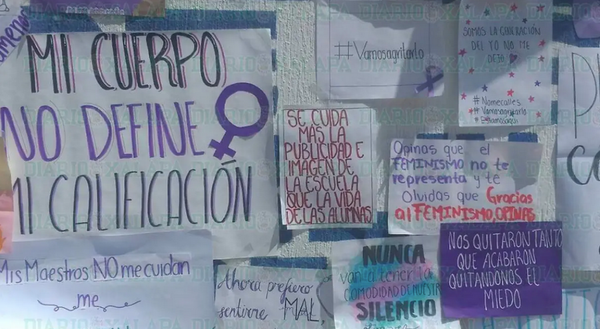 MI CUERPO
NO DEFINE
MI CALIFICACIÓN
#Vamosagritarlo
SOMOS LA GENERACIÓN
DEL YO NO ME
DEJO
#Nomecalles
#Vamosagritarlo
SE CUIDA
MAS LA
PUBLICIDAD E
IMAGEN DE
LA ESCUELA
QUE LA VIDA
DE LAS ALUMNAS
Opinas que el
FEMINISMO no te
representa y te
Olvidas que Gracias
al FEMINISMO, OPINAS
Mis Maestros NO me cuidan
me
Ahora prefiero
sentirme MAL,
NUNCA
van a tener la
COMODIDAD DE NUESTRO
SILENCIO
NOS QUITARON TANTO
QUE ACABARON
QUITANDONOS EL
MIEDO
DIARIO XALAPA